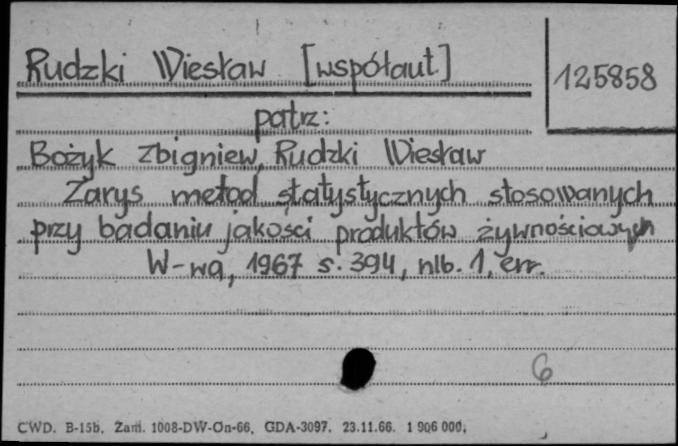 Rudzki Wiesław [współaut.]
125858
patrz:
Bożyk Zbigniew, Rudzki Wiesław
Zarys metod statystycznych stosowanych
przy badaniu jakości produktów żywnościowych
W-wa, 1967 s. 394, nlb. 1, err.
6
CWD. B-15b. Zam. 1008-DW-On-66. GDA-3097. 23.11.66. 1 906 000.